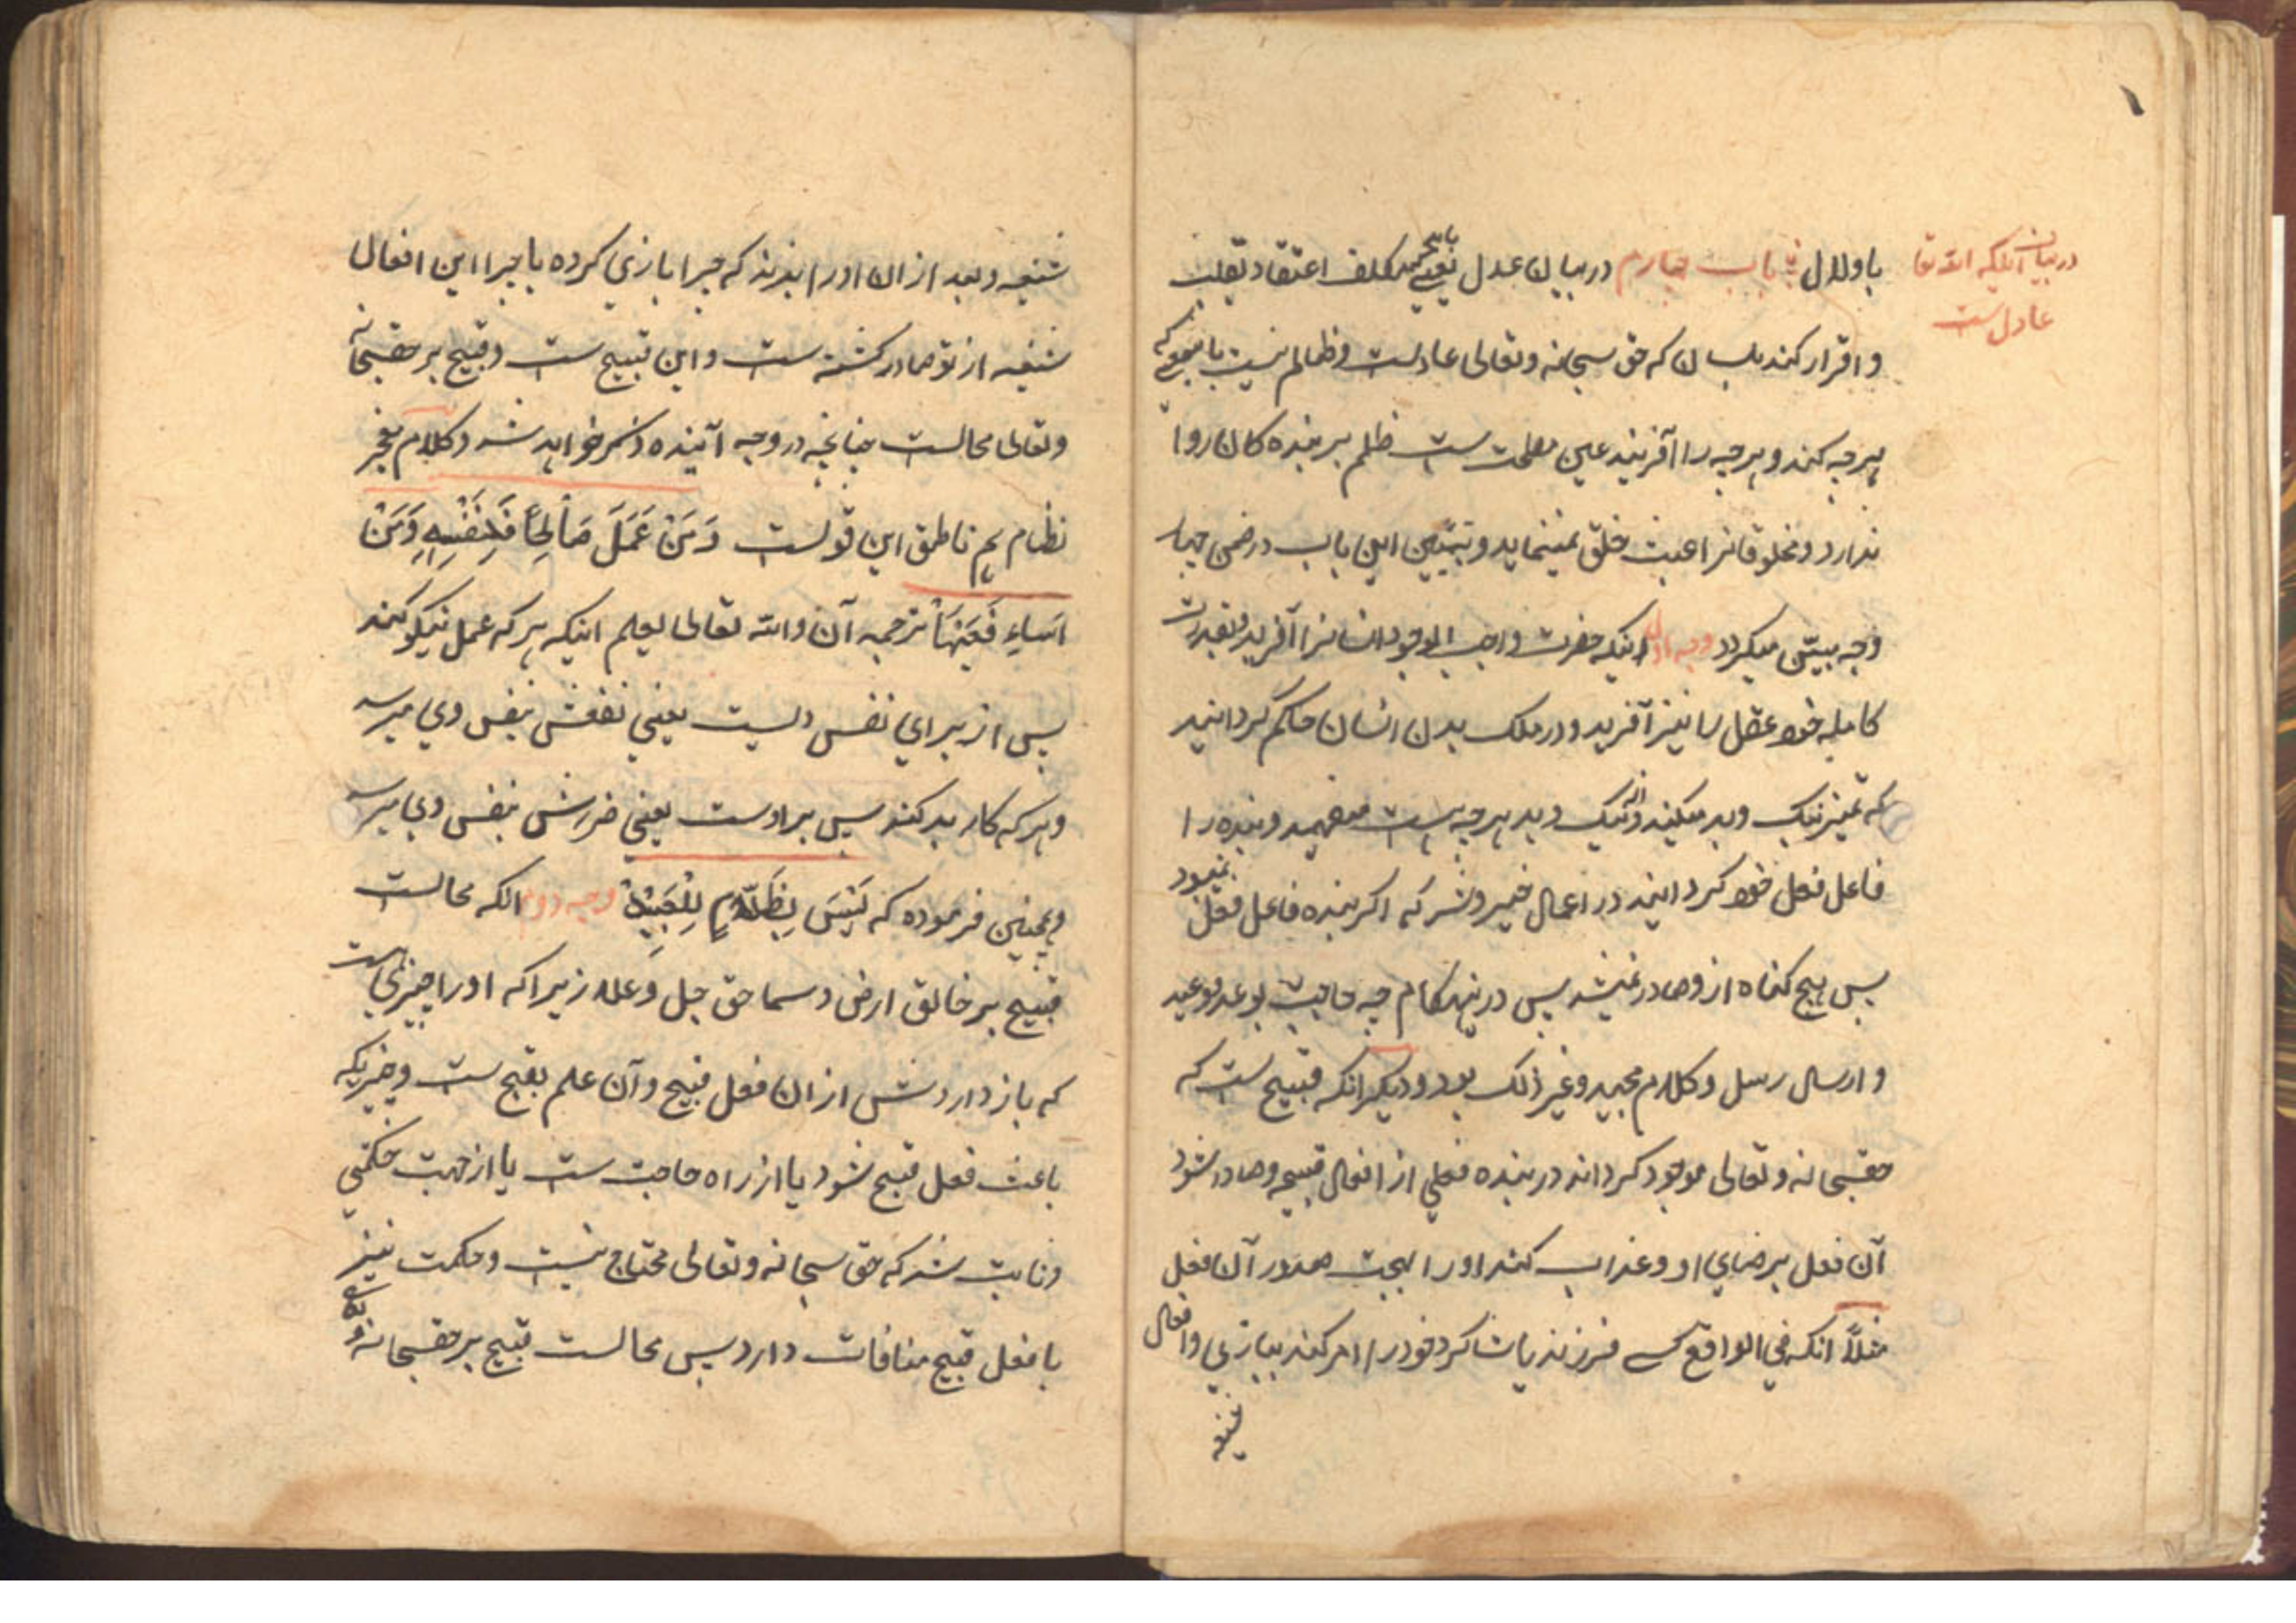 در بیان آنکه الله تعا
عادلست
باولدال باب چهارم در بیان عدل یعنی باید مکلف اعتقاد بقلب
و اقرار کند بلسان که حق سبحانه و تعالی عادلست و ظالم نیست بایمعنی که
هرچه کند و هرچه را آفرینید عین مصلحت ست ظلم بر بنده کان روا
ندارد و مخلوقاترا عبث خلق نمینماید و تبیین این باب در ضمن چهار
وجه مبیّن میکردد وجه اول اینکه حضرت واجب الوجود انسانرا آفرید و بقدرت
کامله خود عقل را نیز آفرید و در ملک بدن انسان حاکم کردانید
که تمیز نیک و بد میکند و از نیک و بد هرچه هست میفهمد و بنده را
فاعل فعل خود کردانید در اعمال خیر و شر که اکر بنده فاعل فعل نمیبود
پس هیچ کناه ازو صادر نمیشد پس درینهنکام چه حاجت بوعد و وعید
و ارسال رسل و کلام مجید و غیر ذلک بود و دیکر انکه قبیح ست که
حقسبحانه و تعالی موجود کرداند در بنده فعلی از افعال قبیحه و صادر شود
آن فعل برضای او و عذاب کند اورا بجهت صدور آن فعل
مثلاً انکه فی الواقع کسی فرزند یا شاکرد خود را امر کند ببازی و افعال
شنیعه
شنیعه و بعد از ان اورا بزند که چرا بازی کرده یا چرا این افعال
شنیعه از تو صادر کشته ست و این قبیح ست و قبیح بر حقسبحانه
و تعالی محالست چنانچه در وجه آینده ذکر خواهد شد و کلام معجز
نظام هم ناطق این قولست وَمَنْ عَمَلَ صَالِحًا فَلِنَفْسِهِ وَمَنْ
اَسَاءِ فَعَلَیْهَا ترجمه آن والله تعالی یعلم اینکه هر که عمل نیکو کند
پس از برای نفس ویست یعنی نفعش بنفس وی میرسد
و هر که کار بد کند پس بر اوست یعنی ضررش بنفس وی میرسد
و همچنین فرموده که لَیْسَ بِظَلَّامٍ لِلْعَبِیْدْ وجه دوم انکه محالست
قبیح بر خالق ارض و سما حق جل وعلا زیرا که اورا چیزی است
که باز داردش از ان فعل قبیح و آن علم بقبح ست و چیزیکه
باعث فعل قبیح شود یا از راه حاجت ست یا از جهت حکمتی
و ثابت شد که حق سبحانه و تعالی محتاج نیست و حکمت نیز
با فعل قبیح منافات دارد پس محالست قبیح بر حقسبحانه و تعالی